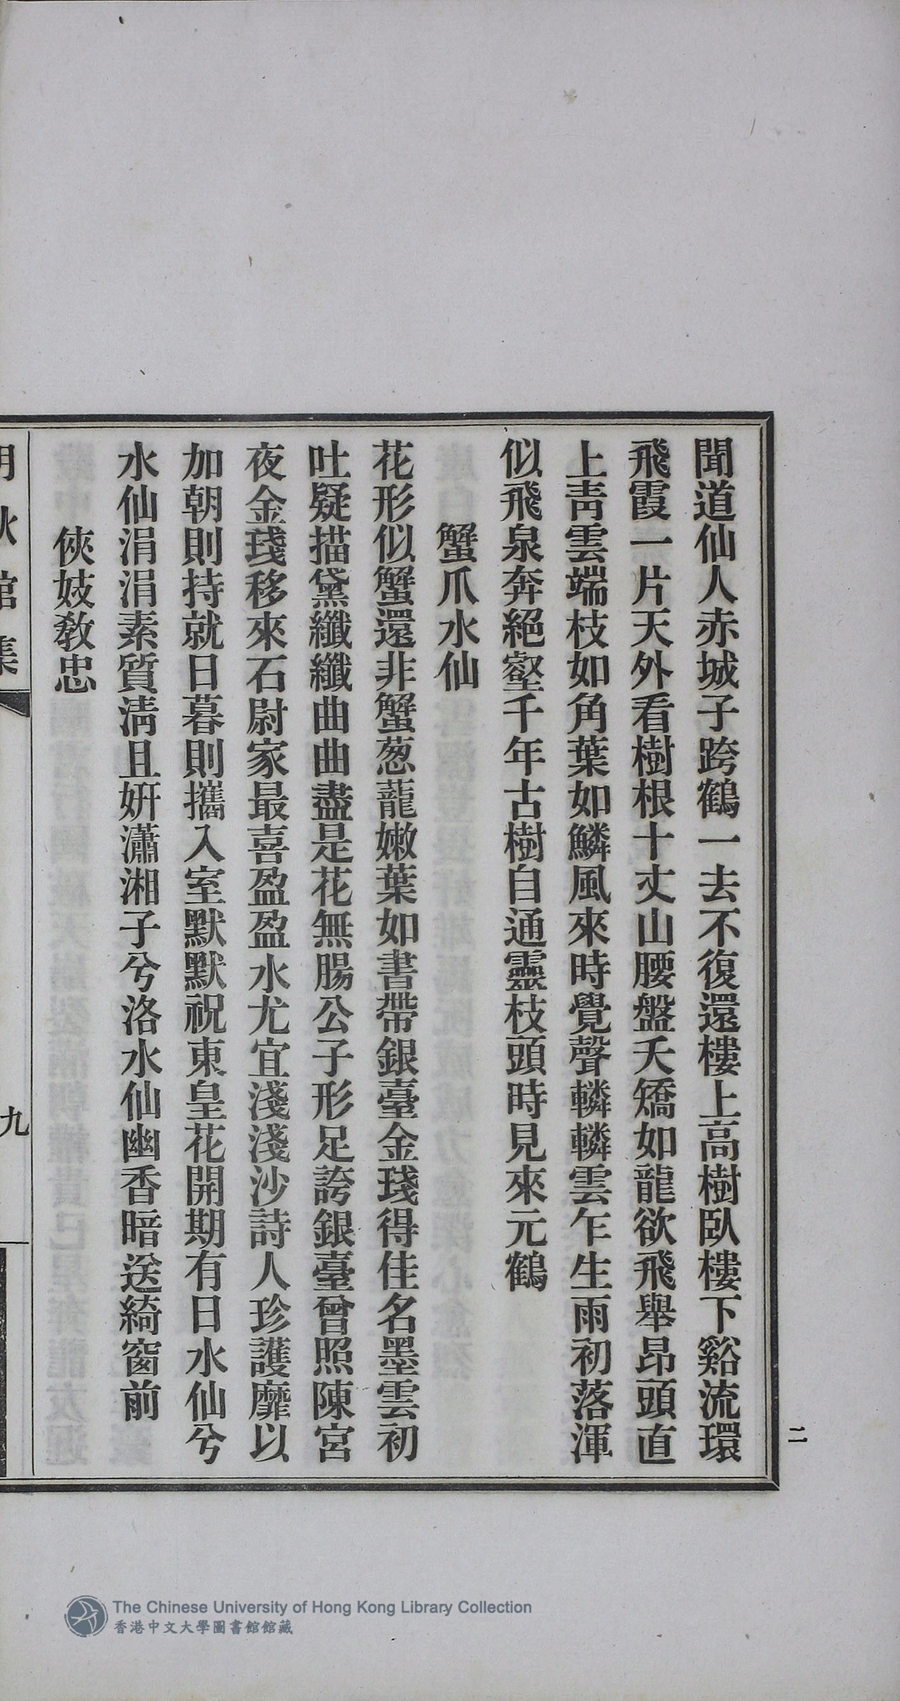 聞道仙人赤城子跨鶴一去不復還樓上高樹臥樓下谿流環
飛霞一片天外看樹根十丈山腰盤夭矯如龍欲飛舉昂頭直
上靑雲端枝如角葉如鱗風來時覺聲轔轔雲乍生雨初落渾
似飛泉奔絕壑千年古樹自通靈枝頭時見來元鶴
蟹爪水仙
花形似蟹還非蟹葱蘢嫩葉如書帶銀臺金琖得佳名墨雲初
吐疑描黛纖纖曲曲盡是花無腸公子形足誇銀臺曾照陳宮
夜金琖移來石尉家最喜盈盈水尤宜淺淺沙詩人珍護靡以
加朝則持就日暮則攜入室默默祝東皇花開期有日水仙兮
水仙涓涓素質淸且妍瀟湘子兮洛水仙幽香暗送綺窗前
俠妓敎忠
秋館集
九
二
The Chinese University of Hong Kong Library Collection
香港中文大學圖書館館藏